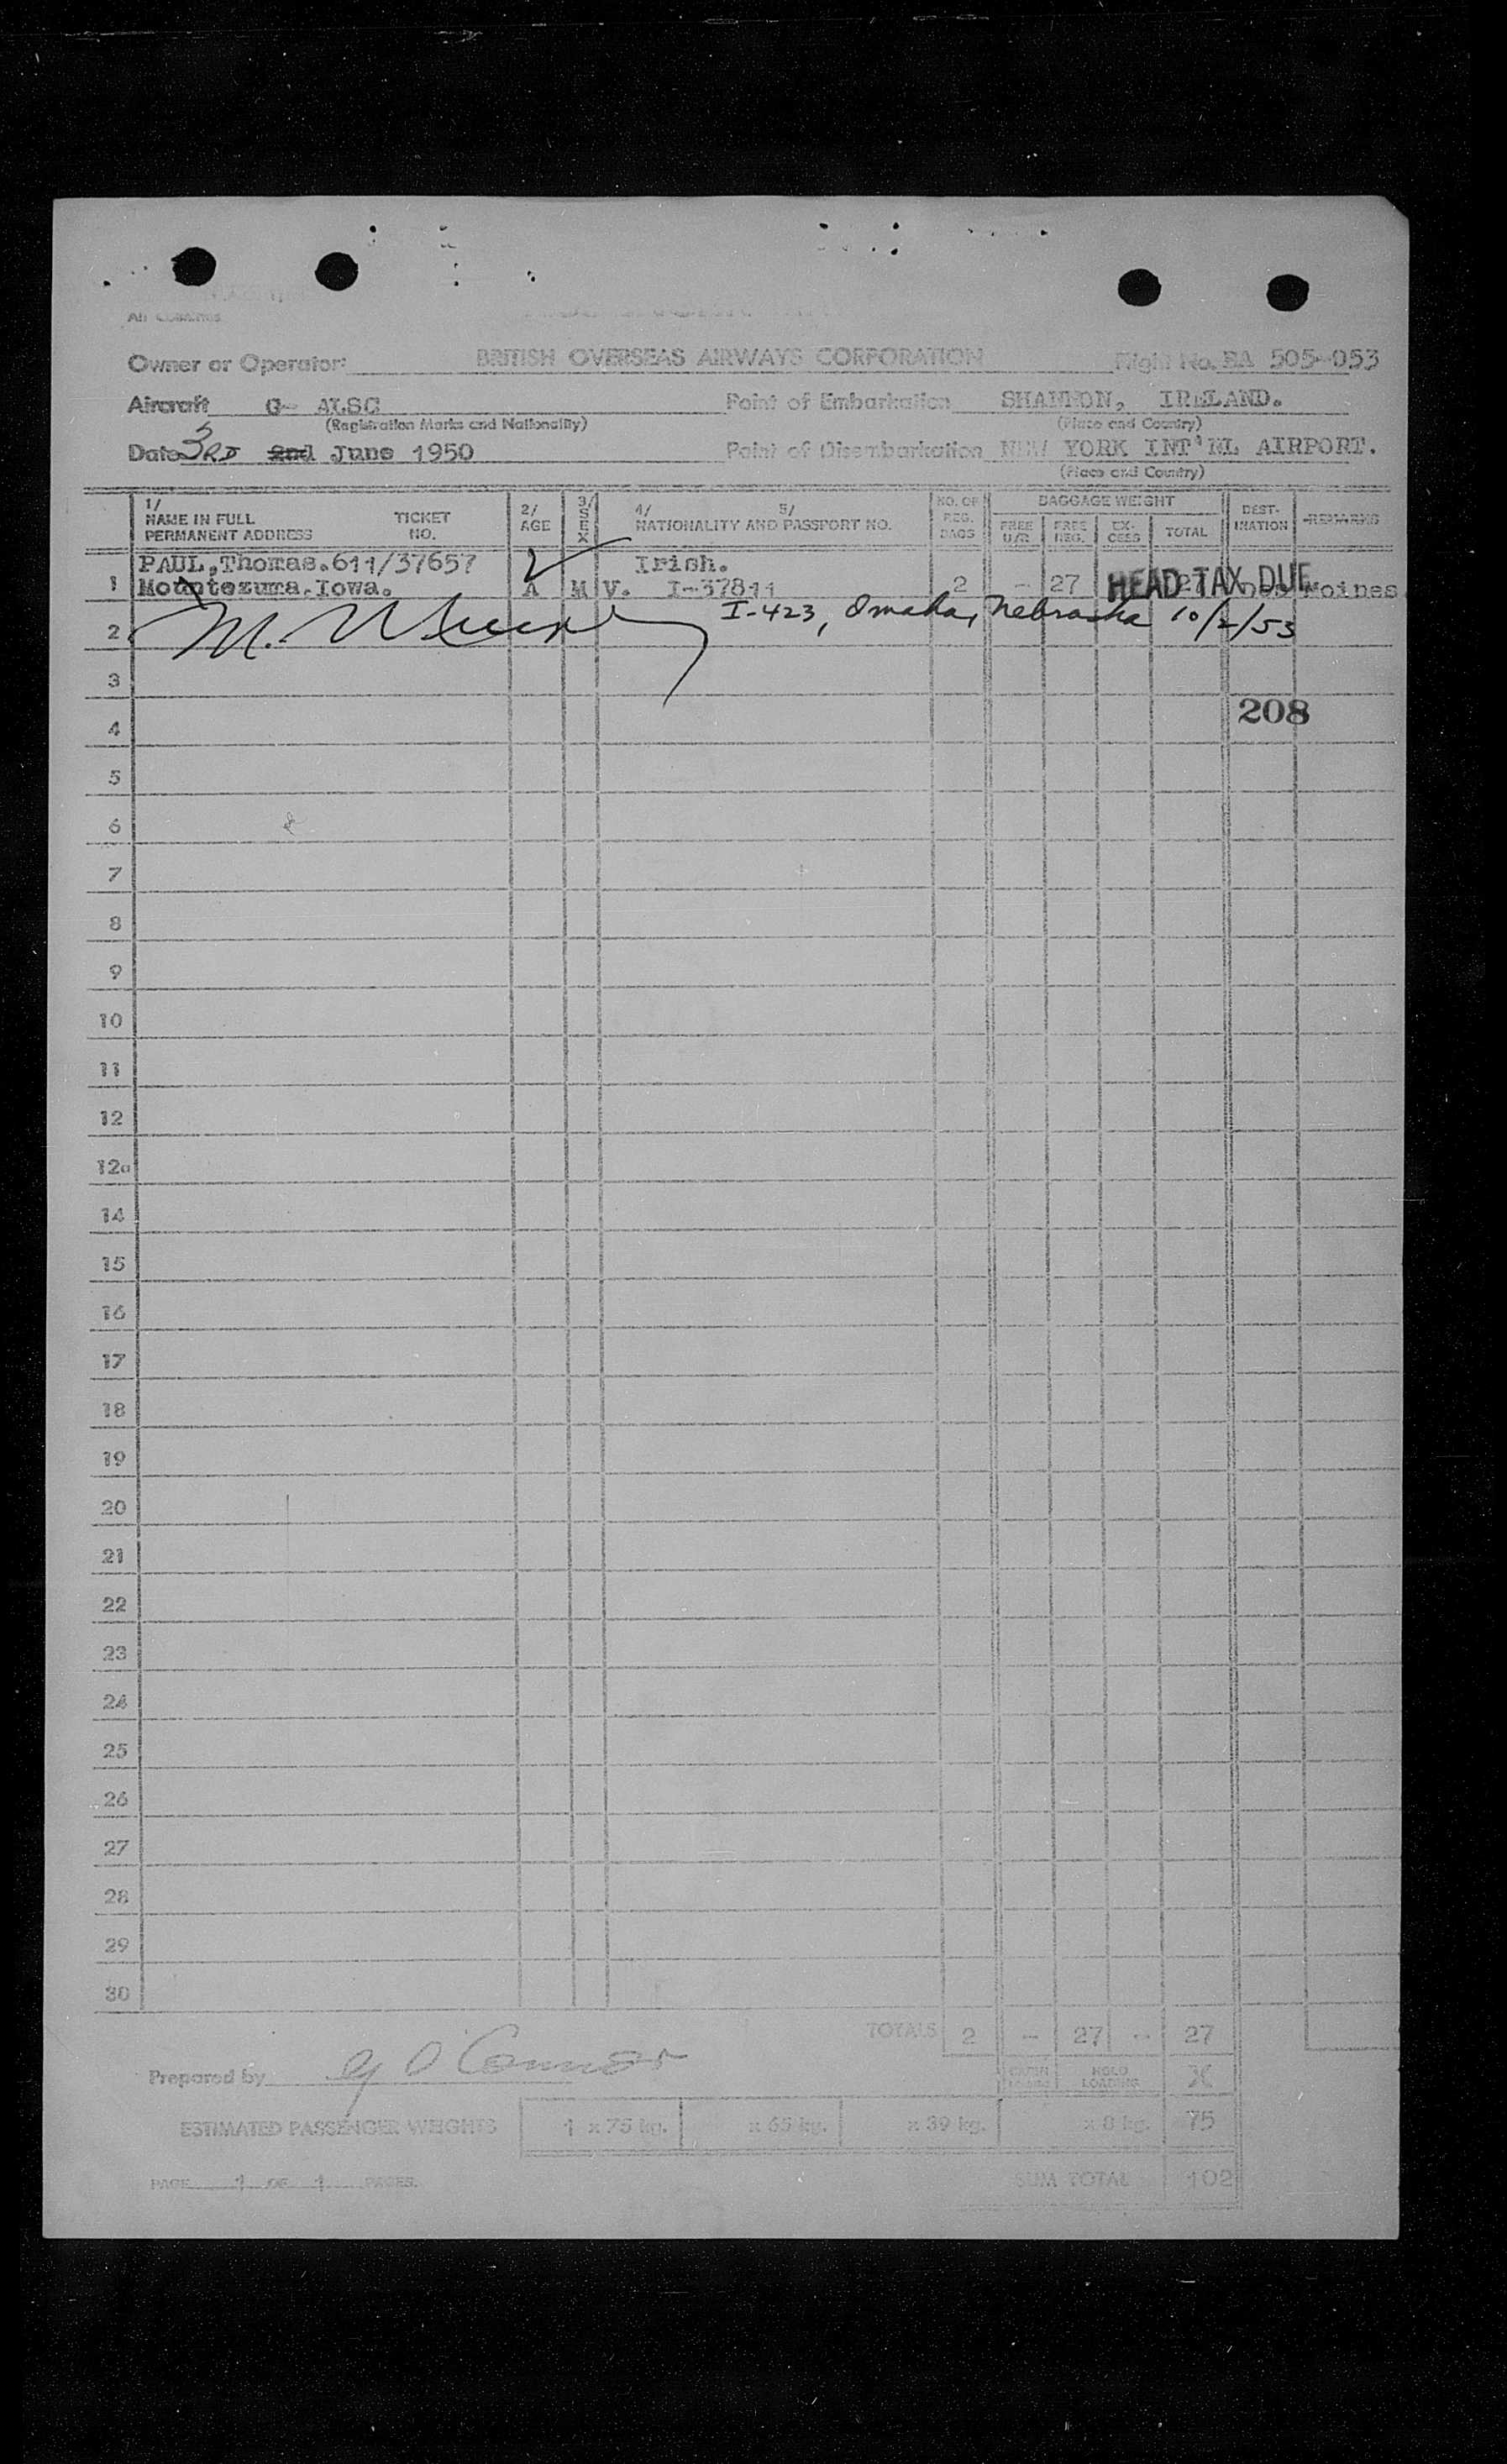 Owner or Operator: BRITISH OVERSEAS AIRWAYS CORPORATION Flight No. BA 505-053
Aircraft G- ALSC Point of Embarkation SHANNON, IRELAND.
(Registration Marks and Nationality) (Place and Country)
Date 3RD 2nd June 1950 Point of Disembarkation NEW YORK INT'NL AIRPORT.
(Place and Country)
1/ NAME IN FULL PERMANENT ADDRESS TICKET NO. 2/ AGE 3/ SEX 4/ 5/ NATIONALITY AND PASSPORT NO. NO. OF REG. BAGS BAGGAGE WEIGHT FREE U/R FREE REG. EX-CESS TOTAL DEST-INATION REMARKS
PAUL,Thomas.611/37657 Irish.
1 Mountezuma,Iowa. A M V. I-37811 2 - 27 HEAD TAX DUE Moines
2 I-423, Omaha, Nebraska 10/2/53
3
208
4
5
6
7
8
9
10
11
12
12a
14
15
16
17
18
19
20
21
22
23
24
25
26
27
28
29
30
TOTALS 2 - 27 - 27
Prepared by O'Connor HOLD LOADING X
ESTIMATED PASSENGER WEIGHTS 1 x 75 kg. x 65 kg. x 39 kg. x 8 kg. 75
PAGE 1 OF 1 PAGES. SUM TOTAL 102